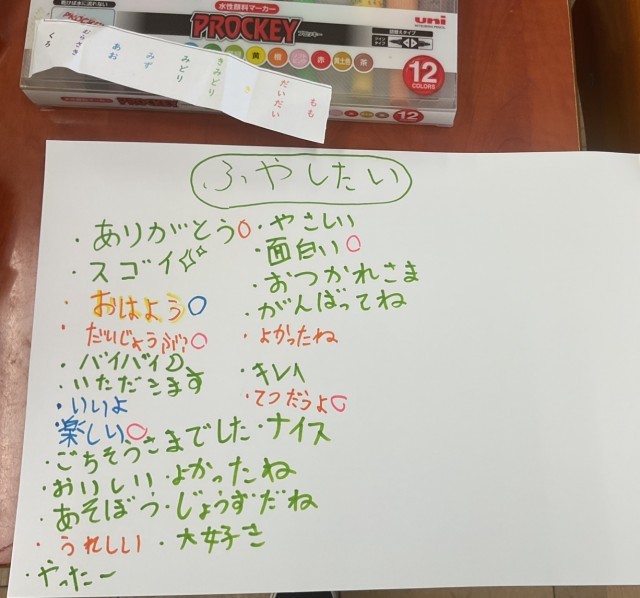 水性顔料マーカー
PROCKEY プロッキー
uni
詰替えタイプ
ツインタイプ
黄 橙 赤 黄土色 茶
12
COLORS
PROCKEY
12
くろ
むらさき
あお
みず
みどり
きみどり
き
だいだい
もも
ふやしたい
・ありがとう○ ・やさしい
・スゴイ☆ ・面白い○
・おはよう○ ・おつかれさま
・だいじょうぶ?○ ・がんばってね
・バイバイ ・よかったね
・いただきます ・キレイ
・いいよ ・てつだうよ○
・楽しい○ ・ナイス
・ごちそうさまでした
・おいしい ・よかったね
・あそぼう ・じょうずだね
・うれしい ・大好き
・やったー